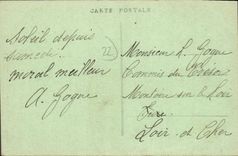 CARTE POSTALE
Soleil depuis
Samedi.
moral meilleur
A. Gogue
22
Monsieur A. Gogue
Commis du Trésor
sur le Loir
Loir et Cher